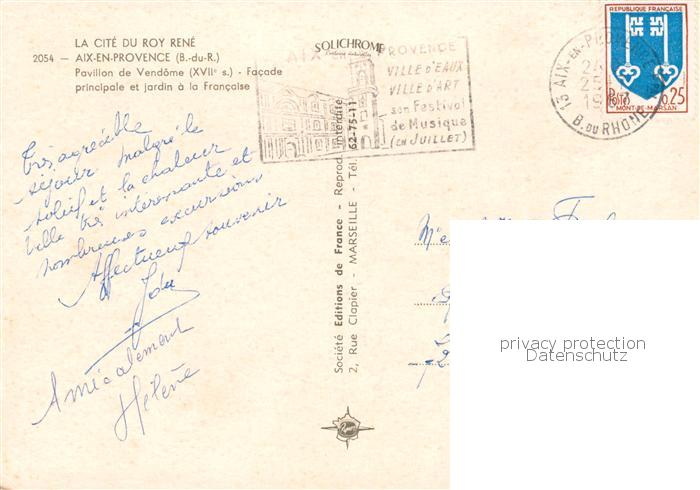 LA CITÉ DU ROY RENÉ
2054 - AIX-EN-PROVENCE (B.-du-R.)
Pavillon de Vendôme (XVIIe s.) - Façade
principale et jardin à la Française
Très agréable
séjour malgré le
soleil et la chaleur
Ville très interessante et
nombreuses excursions
Affectueux souvenir
Amicalement
Hélène
SOLICHROME
AIX EN PROVENCE
VILLE D'EAUX
VILLE D'ART
son Festival
de Musique
(EN JUILLET)
Société Editions de France - Reprod. interdite
2, Rue Clapier - MARSEILLE - Tél. 62-75-11
REPUBLIQUE FRANÇAISE
0,25
MONT-DE-MARSAN
13 AIX-EN-PROVENCE
B. DU RHONE
privacy protection
Datenschutz